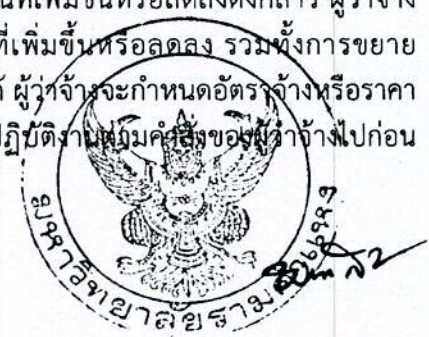 ผู้ว่าจ้าง
ที่เพิ่มขึ้นหรือลดลง รวมทั้งการขยาย
ผู้ว่าจ้างจะกำหนดอัตราจ้างหรือราคา
ปฏิบัติงานตามคำสั่งของผู้ว่าจ้างไปก่อน
มหาวิทยาลัยราม